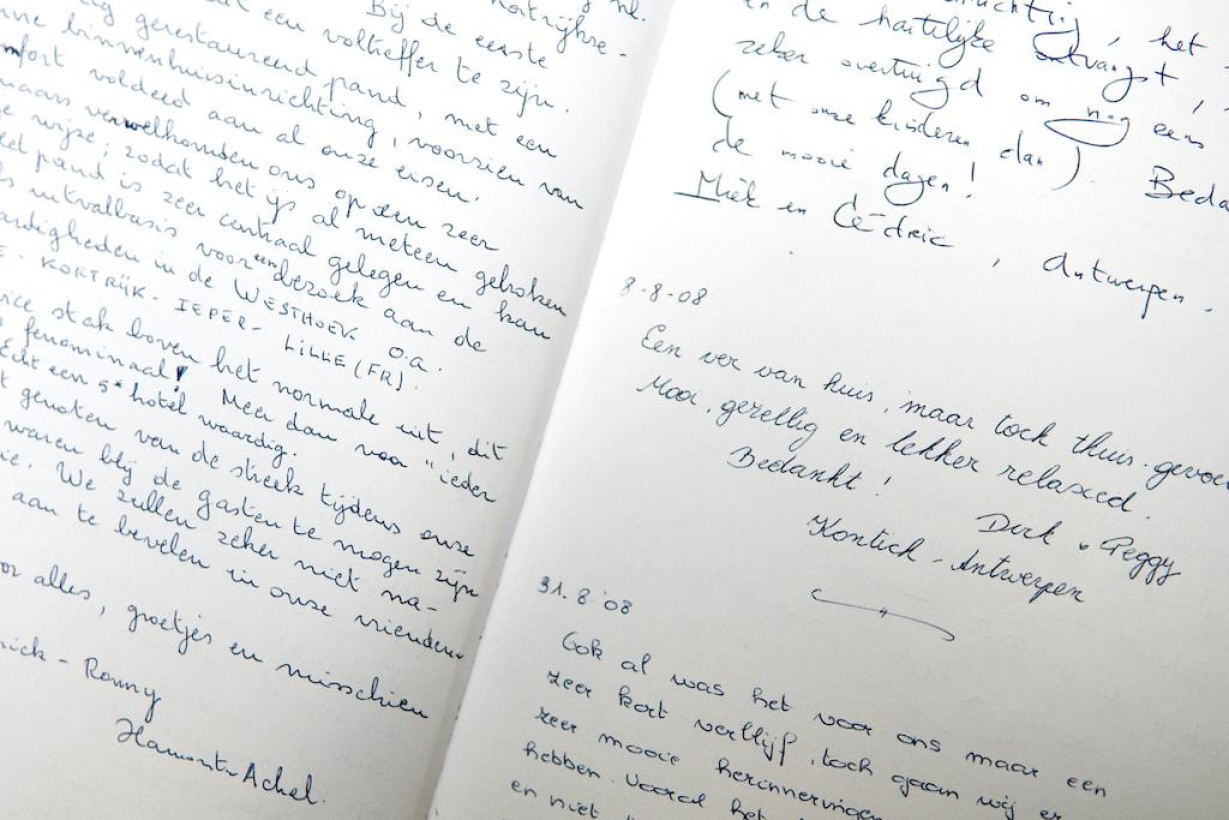 nl.
Kortrijkse-
dat een voltreffer te zijn.
Bij de eerste
gerestaureerd pand, met een
binnenhuisinrichting, voorzien van
mfort voldeed aan al onze eisen.
verwelkomden ons op een zeer
wijze; zodat het ijs al meteen gebroken
et pand is zeer centraal gelegen en kan
ls uitvalbasis voor een bezoek aan de
ardigheden in de WESTHOEK o.a.
E - KORTRIJK - IEPER - LILLE (FR).
vice stak boven het normale uit, dit
fenominaal! Meer dan voor "ieder
Echt een 5* hotel waardig.
genoten van de streek tijdens onze
waren blij de gasten te mogen zijn
ie. We zullen zeker niet na-
aan te bevelen in onze vrienden
or alles, groetjes en misschien
nick - Ronny
Hamont-Achel.
, het
en de hartelijke ontvangst,
zeker overtuigd om nog eens
(met onze kinderen dan). Beda
de mooie dagen!
Miek en Cédric, Antwerpen.
8-8-08
Een ver van huis, maar toch thuis-gevoe
Mooi, gezellig en lekker relaxed.
Bedankt!
Dirk & Peggy
Kontich - Antwerpen
31.8.08
Ook al was het voor ons maar een
zeer kort verblijf, toch gaan wij er
zeer mooie herinneringen
hebben. Vooral het
en niet